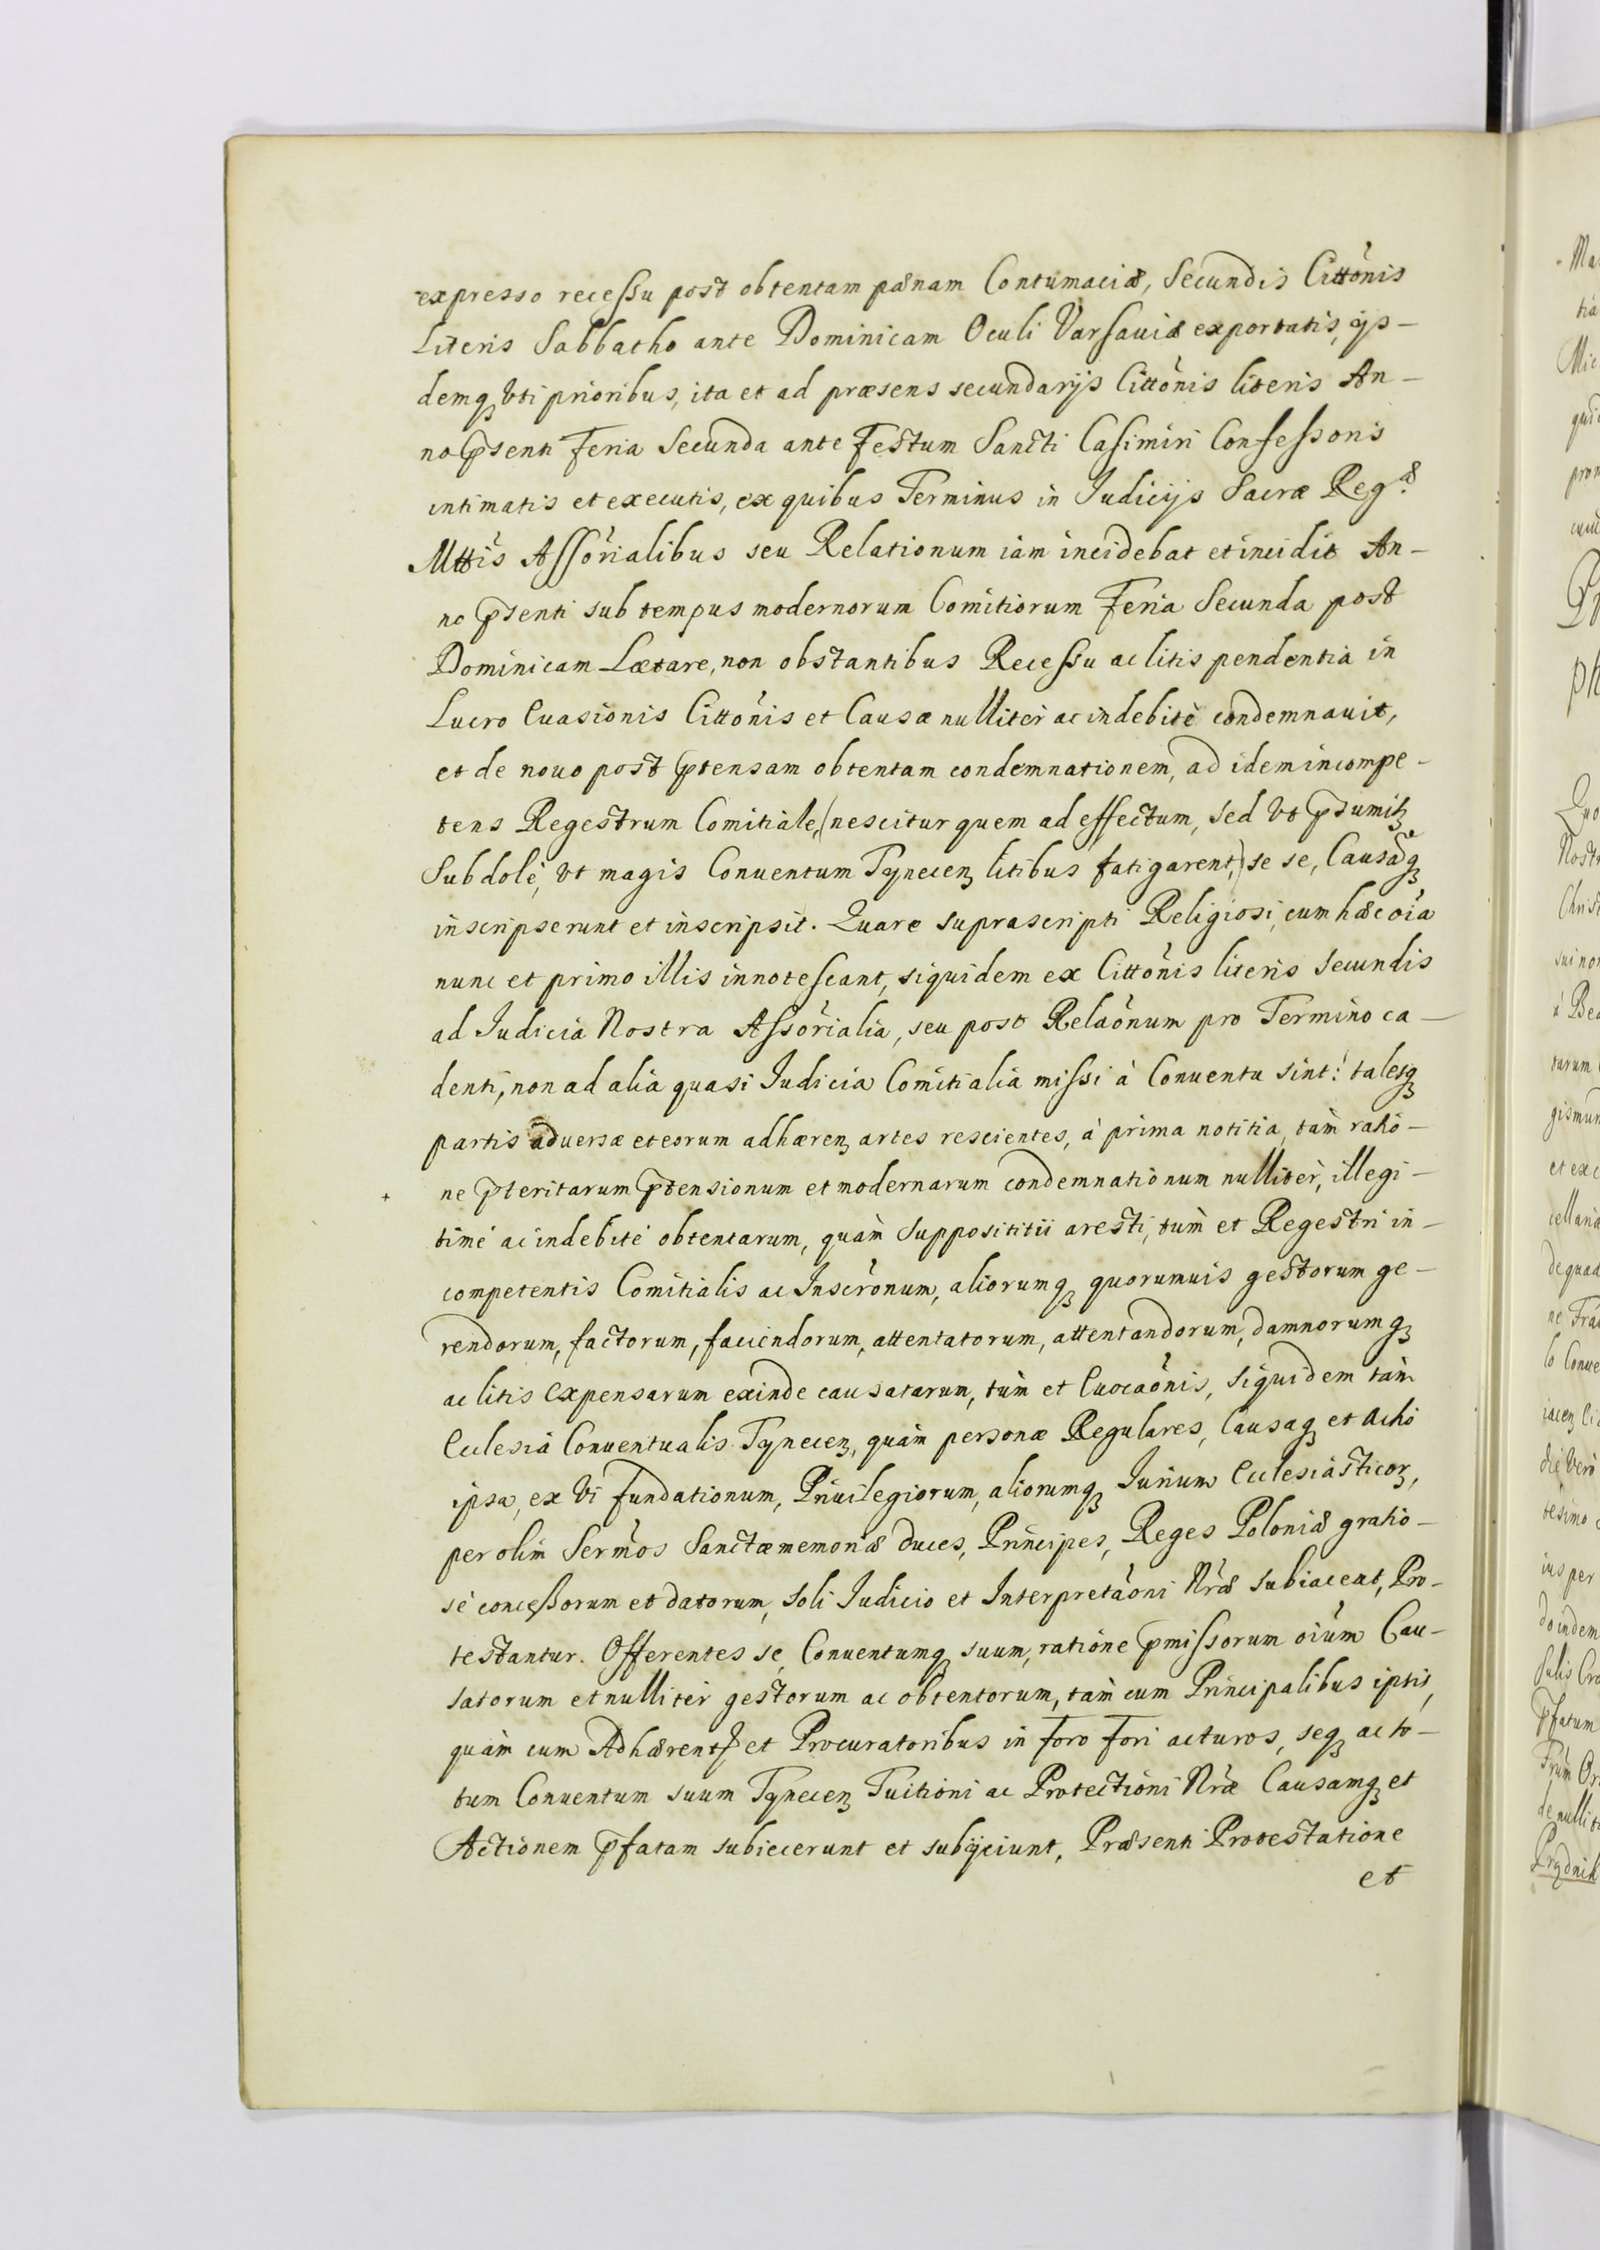 expresso recessu post obtentam pænam Contumaciæ, Secundis Cittõnis
Literis Sabbatho ante Dominicam Oculi Varsauiæ exportatis, ijs-
demq₃ Vti prioribus, ita et ad præsens secundarijs Cittõnis literis An-
no p̃senti Feria Secunda ante Festum Sancti Casimiri Confessoris
intimatis et executis, ex quibus Terminus in Iudicijs Sacræ Reg.æ
Mttis Assõrialibus seu Relationum iam incidebat et incidit An-
no p̃senti sub tempus modernorum Comitiorum Feria Secunda post
Dominicam Lætare, non obstantibus Recessu ac litis pendentia in
Lucro Euasionis Cittõnis et Causæ nulliter ac indebitè condemnauit,
et de nouo post p̃tensam obtentam condemnationem, ad idem incompe-
tens Regestrum Comitiale, (nescitur quem ad effectum, sed Vt p̃sumit₃
Subdolè, Vt magis Conuentum Tynecen₃ litibus fatigarent,) se se, Causãq₃
inscripserunt et inscripsit. Quare suprascripti Religiosi, cum hæc oĩa
nunc et primo illis innotescant, siquidem ex Cittõnis literis secundis
ad Iudicia Nostra Assõrialia, seu post Relãonum pro Termino ca-
denti, non ad alia quasi Iudicia Comitialia missi à Conuentu sint: talesq₃
partis aduersæ et eorum adhæren₃ artes rescientes, à prima notitia, tàm ratio-
ne p̃teritarum p̃tensionum et modernarum condemnationum nulliter, illegi-
timè ac indebitè obtentarum, quàm Supposititii aresti, tùm et Regestri in-
competentis Comitialis ac Inscrõnum, aliorumq₃ quorumuis gestorum ge-
rendorum, factorum, faciendorum, attentatorum, attentandorum, damnorumq₃
ac litis expensarum exinde causatarum, tùm et Euocãonis, siquidem tàm
Ecclesia Conuentualis Tynecen₃, quàm personæ Regulares, Causaq₃ et Actio
ipsa, ex Vi fundationum, Priuilegiorum, aliorumq₃ Iurium Ecclesiasticor₃,
per olim Serm̃os Sanctæ memoriæ Duces, Principes, Reges Poloniæ gratio-
sè concessorum et datorum, soli Iudicio et Interpretãoni Nr̃æ subiaceat, Pro-
testantur. Offerentes se, Conuentumq₃ suum, ratione p̃missorum oĩum Cau-
satorum et nulliter gestorum ac obtentorum, tàm cum Principalibus ipsis,
quàm cum Adhærent₃ et Procuratoribus in foro fori acturos, seq₃ ac to-
tum Conuentum suum Tynecen₃ Tuitioni ac Protectioni Nr̃æ Causamq₃ et
Actionem p̃fatam subiecerunt et subijciunt, Præsenti Protestatione
et